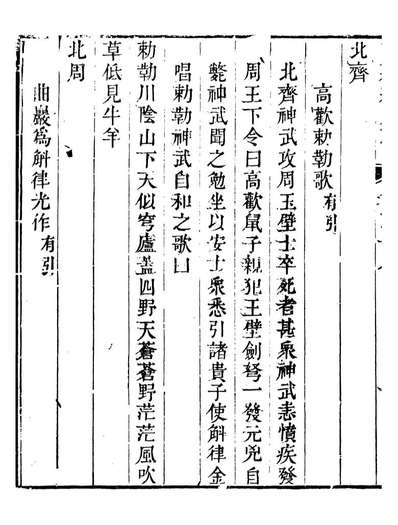 北齊
高歡勅勒歌有引
北齊神武攻周玉壁士卒死者甚衆神武恚憤疾發
周王下令曰高歡鼠子親犯玉壁劍弩一發元兇自
斃神武聞之勉坐以安士衆悉引諸貴子使斛律金
唱勅勒神武自和之歌曰
勅勒川陰山下天似穹廬蓋四野天蒼蒼野茫茫風吹
草低見牛羊
北周
曲巖爲斛律光作有引